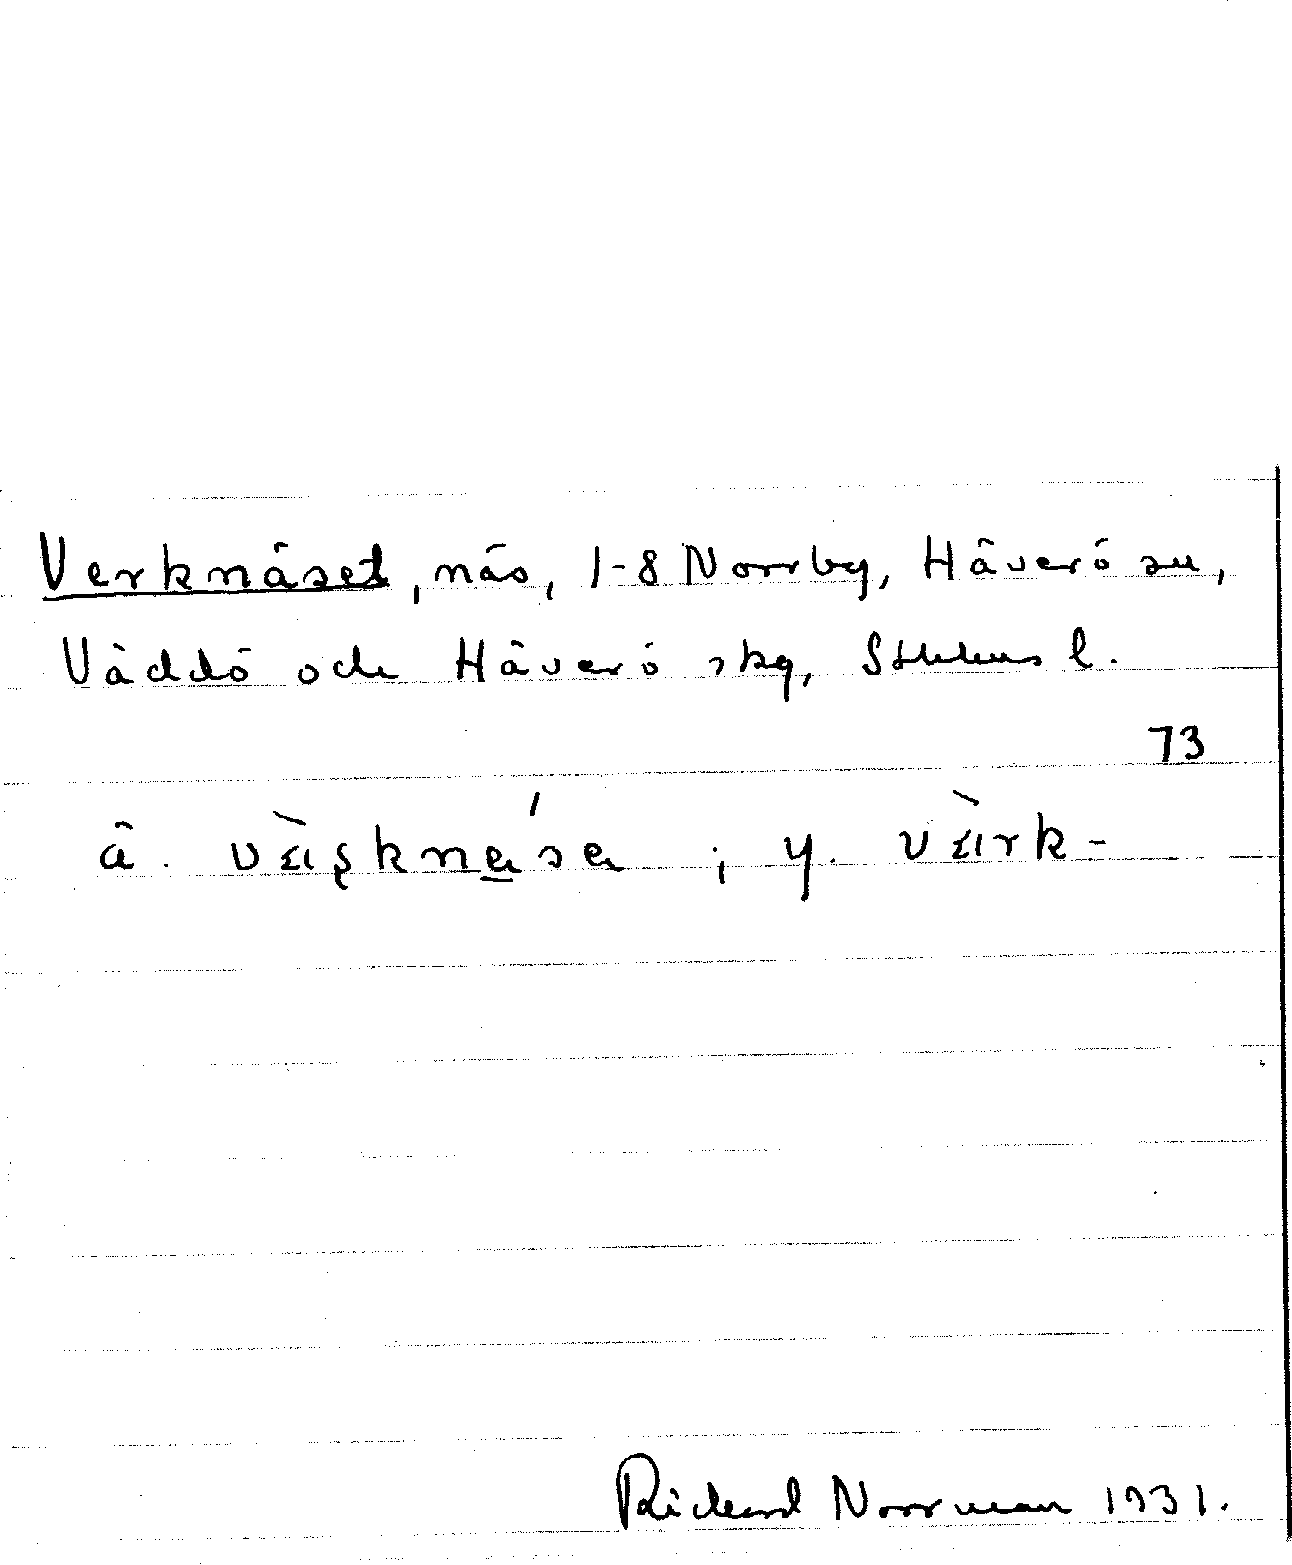 Verknäset, näs, 1-8 Norrby, Häverö sn,
Väddö och Häverö skg, Sthlms l.
73
ä. värknäsa ; y. värk-
Rickard Norrman 1931.